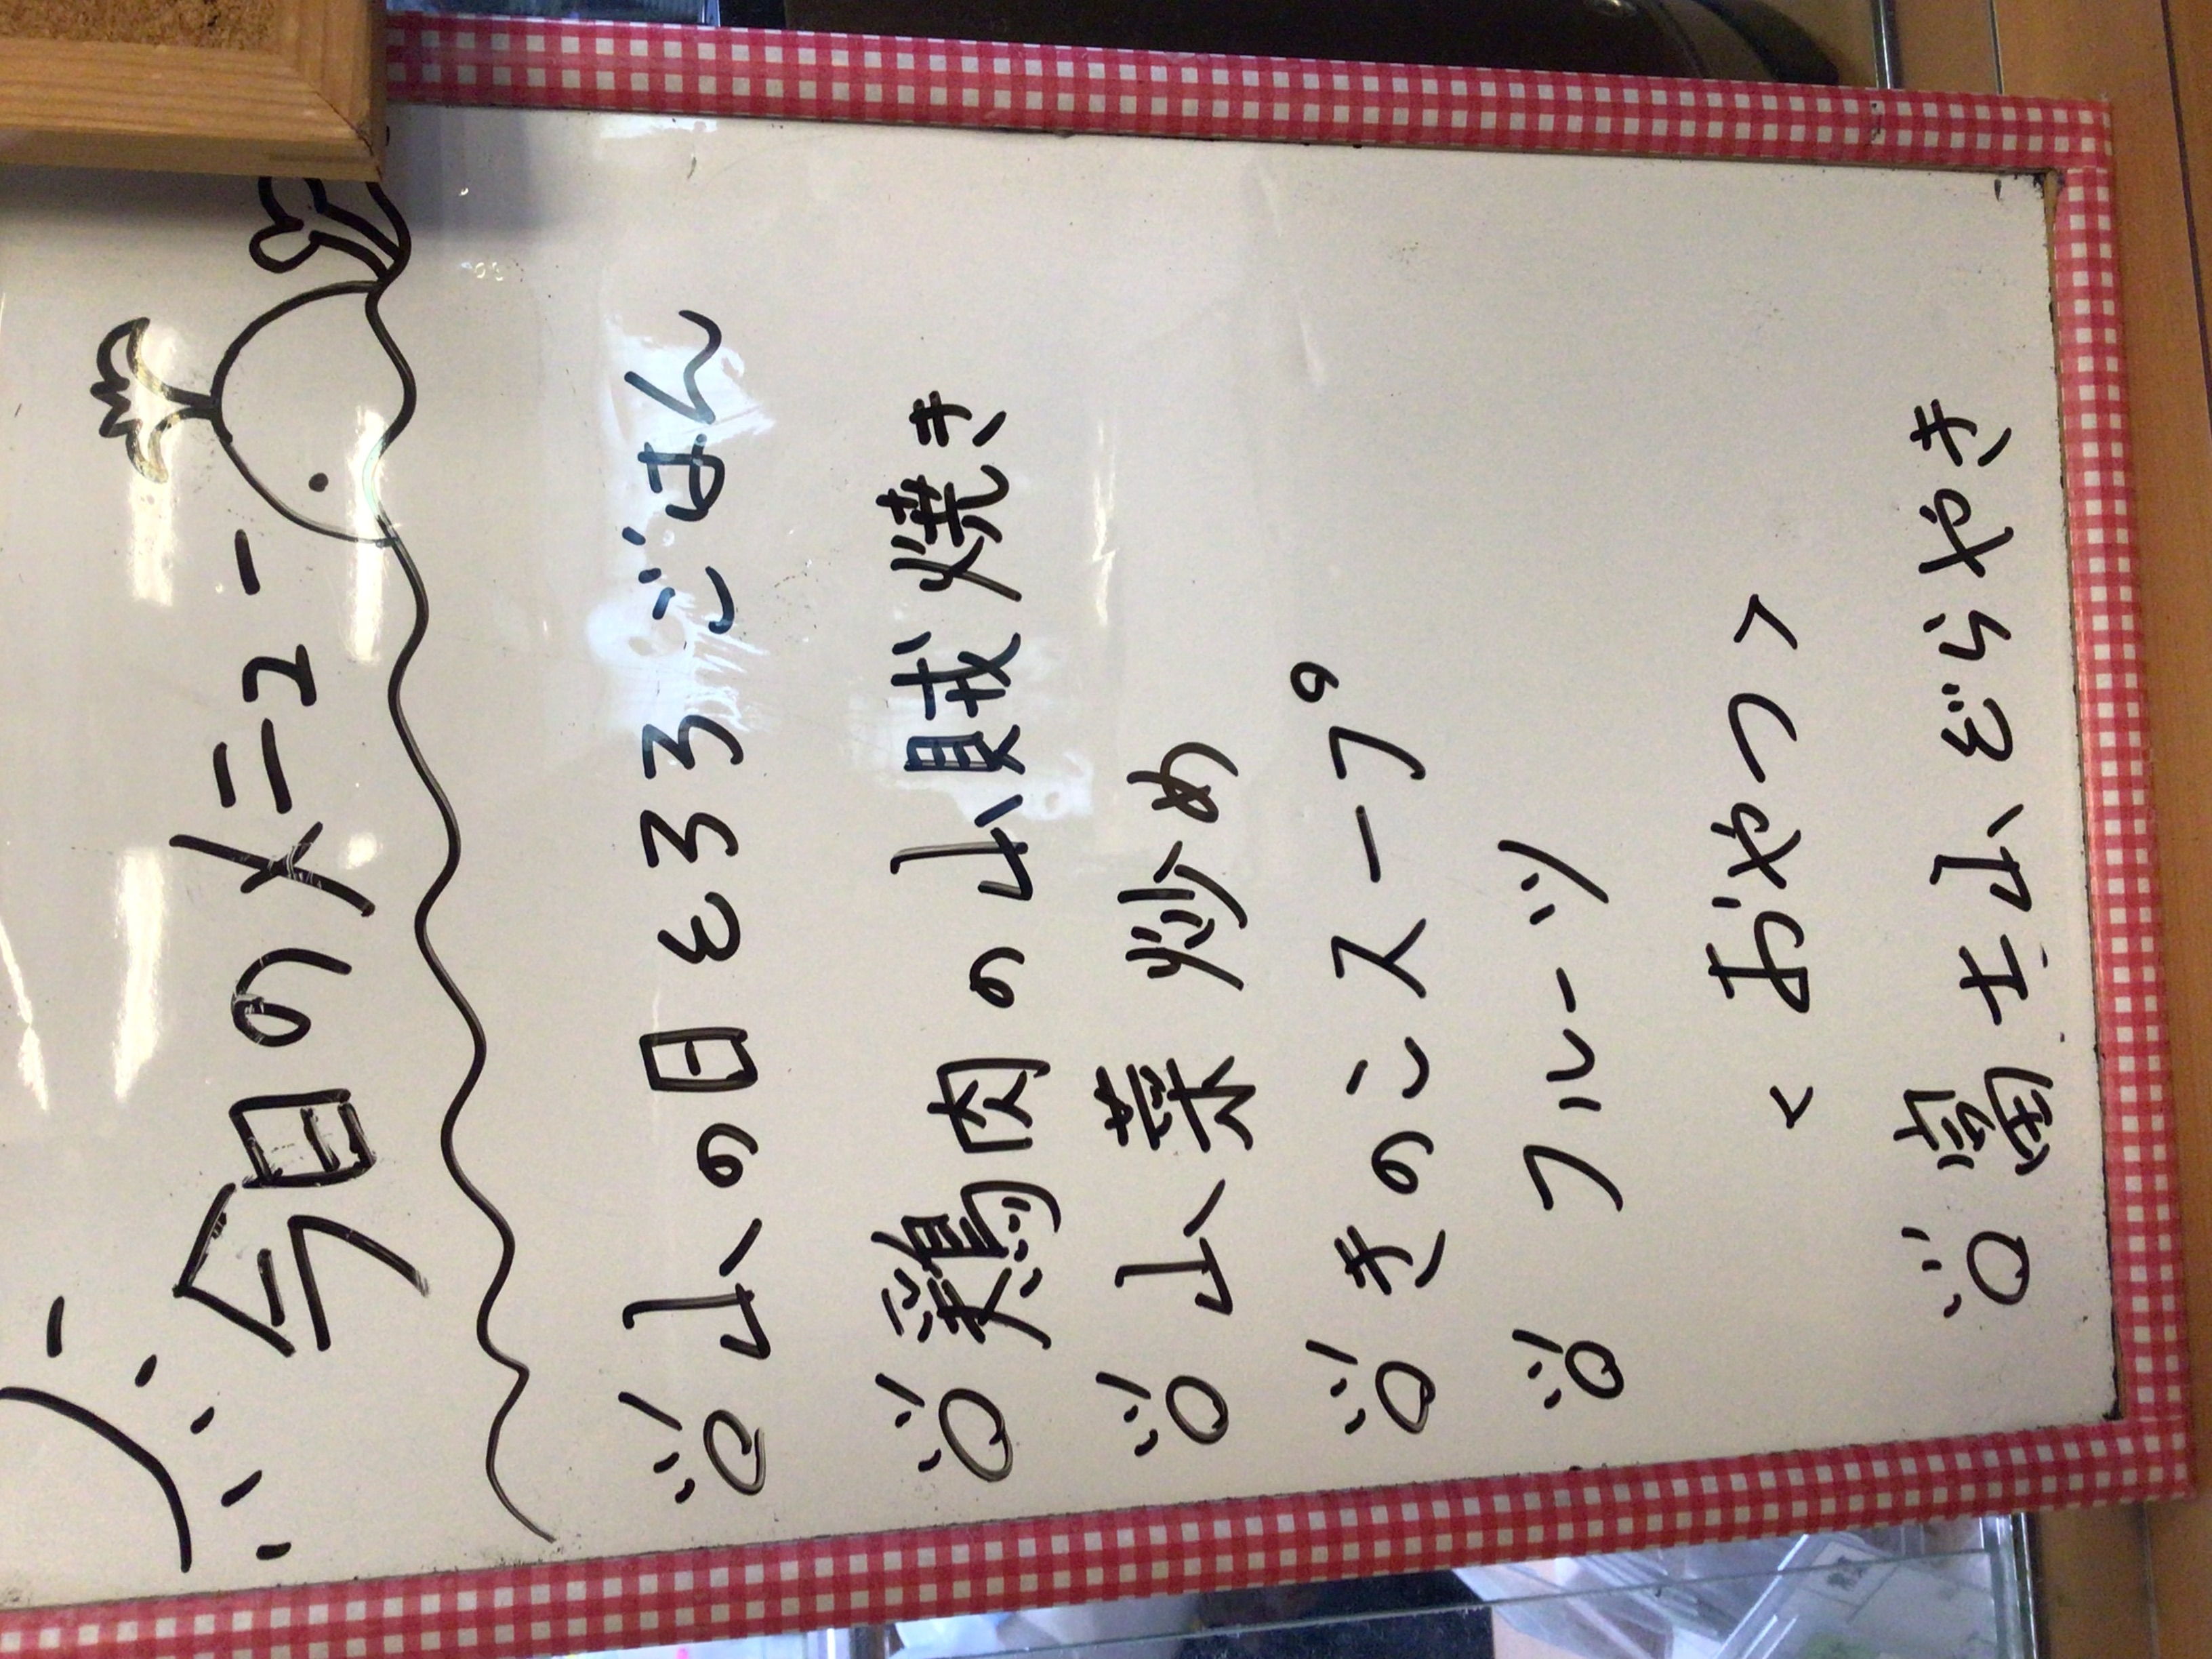 今日のメニュー
山の日とろろごはん
鶏肉の山賊焼き
山菜炒め
きのこスープ
フルーツ
<おやつ>
富士山どらやき